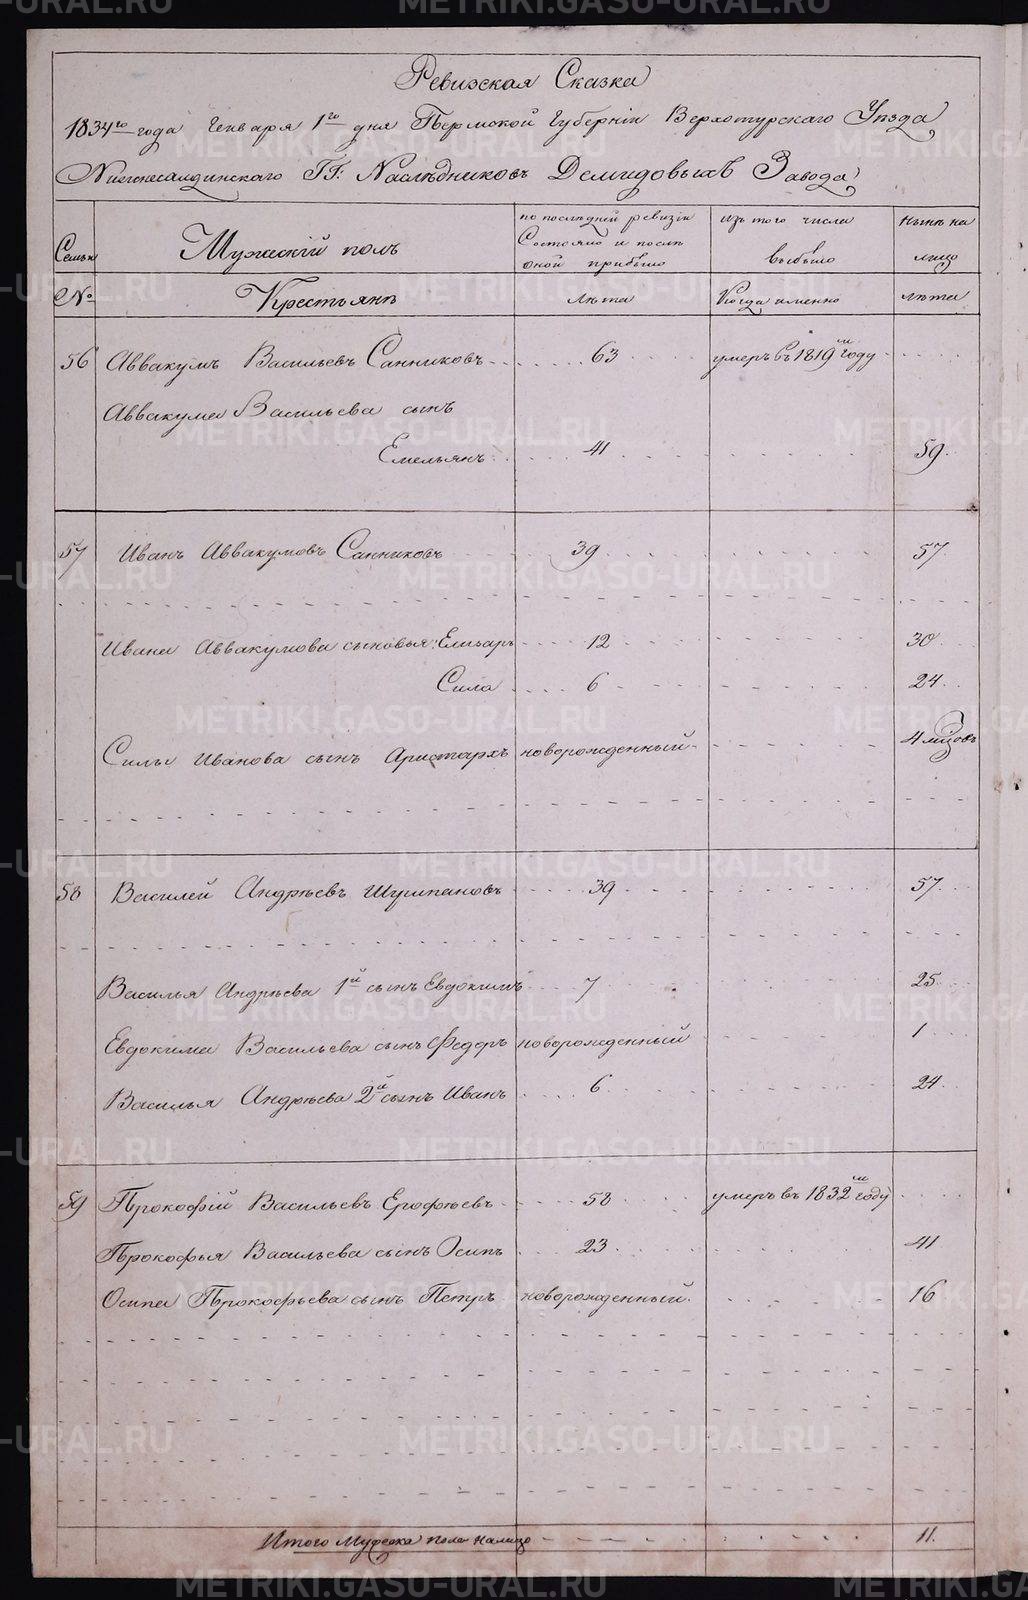 Ревизская Сказка
1834го года Генваря 1го дня Пермской Губерніи Верхотурскаго Уѣзда
Нижнесалдинскаго ГГ: Наслѣдниковъ Демидовыхъ Завода
Семьи Мужескій полъ по послѣдней ревизіи Состояло и послѣ оной прибыло изъ того числа выбыло нынѣ на лицо
№ Крестьянъ лѣта Когда именно лѣта
56 Аввакумъ Васильевъ Санниковъ 63 умеръ въ 1819м году
Аввакума Васильева сынъ
Емельянъ 41 59
57 Иванъ Аввакумовъ Санниковъ 39 57
Ивана Аввакумова сыновья: Елизаръ 12 30
Сила 6 24
Силы Иванова сынъ Аристархъ новорожденный 4 мѣсовъ
58 Василей Андрѣевъ 39 57
Василья Андрѣева 1й сынъ Евдокимъ 7 25
Евдокима Васильева сынъ Федоръ новорожденный 1
Василья Андрѣева 2й сынъ Иванъ 6 24
59 Прокофій Васильевъ Ерофѣевъ 58 умеръ въ 1832м году
Прокофья Васильева сынъ Осипъ 23 41
Осипа Прокофьева сынъ Петръ новорожденный 16
Итого Мужеска пола налицо 11.
METRIKI.GASO-URAL.RU